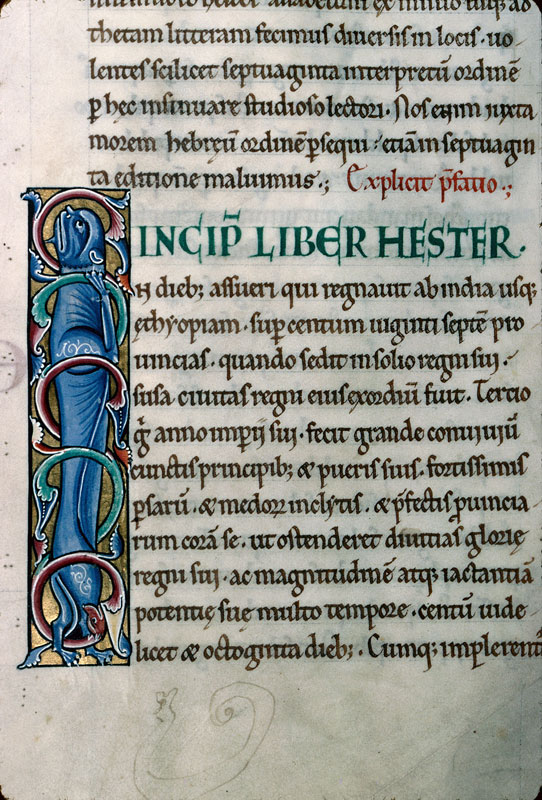 thetam litteram fecimus diuersis in locis· uo
lentes scilicet septuaginta interpretū ordinē
ꝑ hęc insinuare studioso lectori. Nos enim iuxta
morem hebręū ordinē ꝑsequi· etiā in septuagin
ta editione maluimus·; Explicit p̄fatio·;
INCIP̄ LIBER HESTER·
IN dieb; assueri qui regnauit ab india usq;
ęthyopiam· sup centum uiginti septē pro
uincias· quando sedit in solio regni sui·
susa ciuitas regni eius exordiū fuit. Tercio
g̊ anno imperij sui· fecit grande conuiuiū
cunctis principib; & pueris suis· fortissimis
ꝑsarū· & medoꝝ inclytis· & p̄fectis prouincia
rum corā se· ut ostenderet diuitias glorię
regni sui· ac magnitudinē atq; iactantiā
potentię suę multo tempore· centū uide
licet & octoginta dieb;· Cumq; implerent